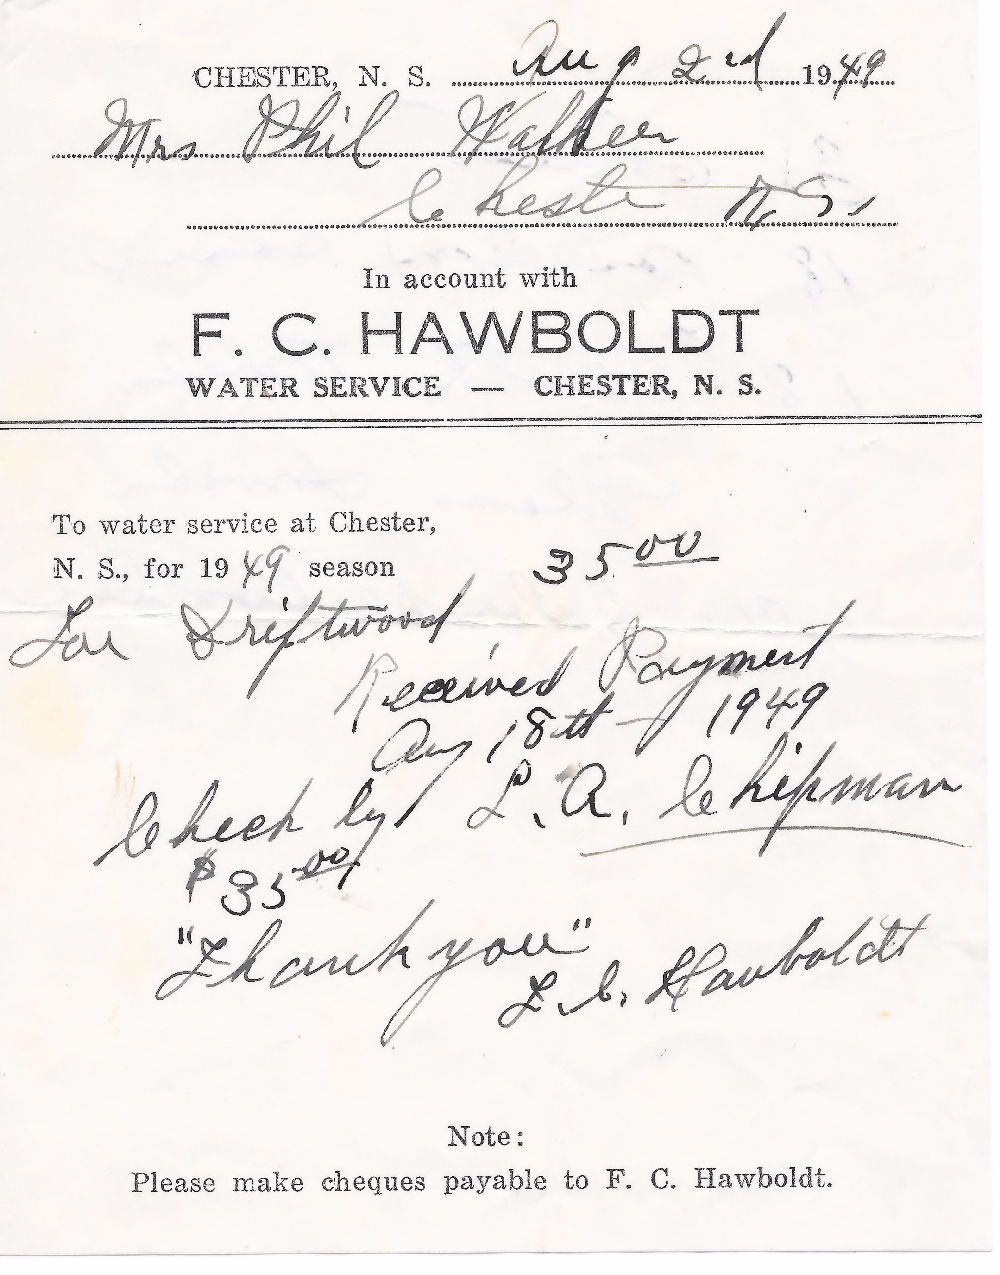 CHESTER, N. S. Aug 2nd 1949
Mrs Phil Walker
Chester N.S.
In account with
F. C. HAWBOLDT
WATER SERVICE — CHESTER, N. S.
To water service at Chester,
N. S., for 1949 season 35.00
For Driftwood
Received Payment
Aug 18th - 1949
Check by L. A. Chipman
$35.00
"Thank you"
F. C. Hawboldt
Note:
Please make cheques payable to F. C. Hawboldt.